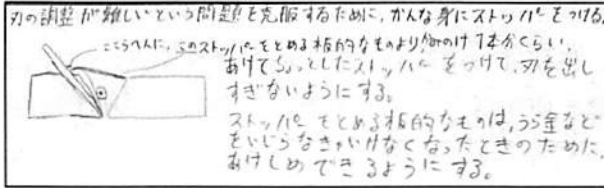 刃の調整が難しいという問題を克服するために、かんな身にストッパーをつける。
ここらへんに、このストッパーをとめる板的なものより かみのけ1本分くらい、
あけてちょっとしたストッパーをつけて、刃を出し
すぎないようにする。
ストッパーをとめる板的なものは、うら金など
をいじらなきゃいけなくなったときのために、
あけしめできるようにする。